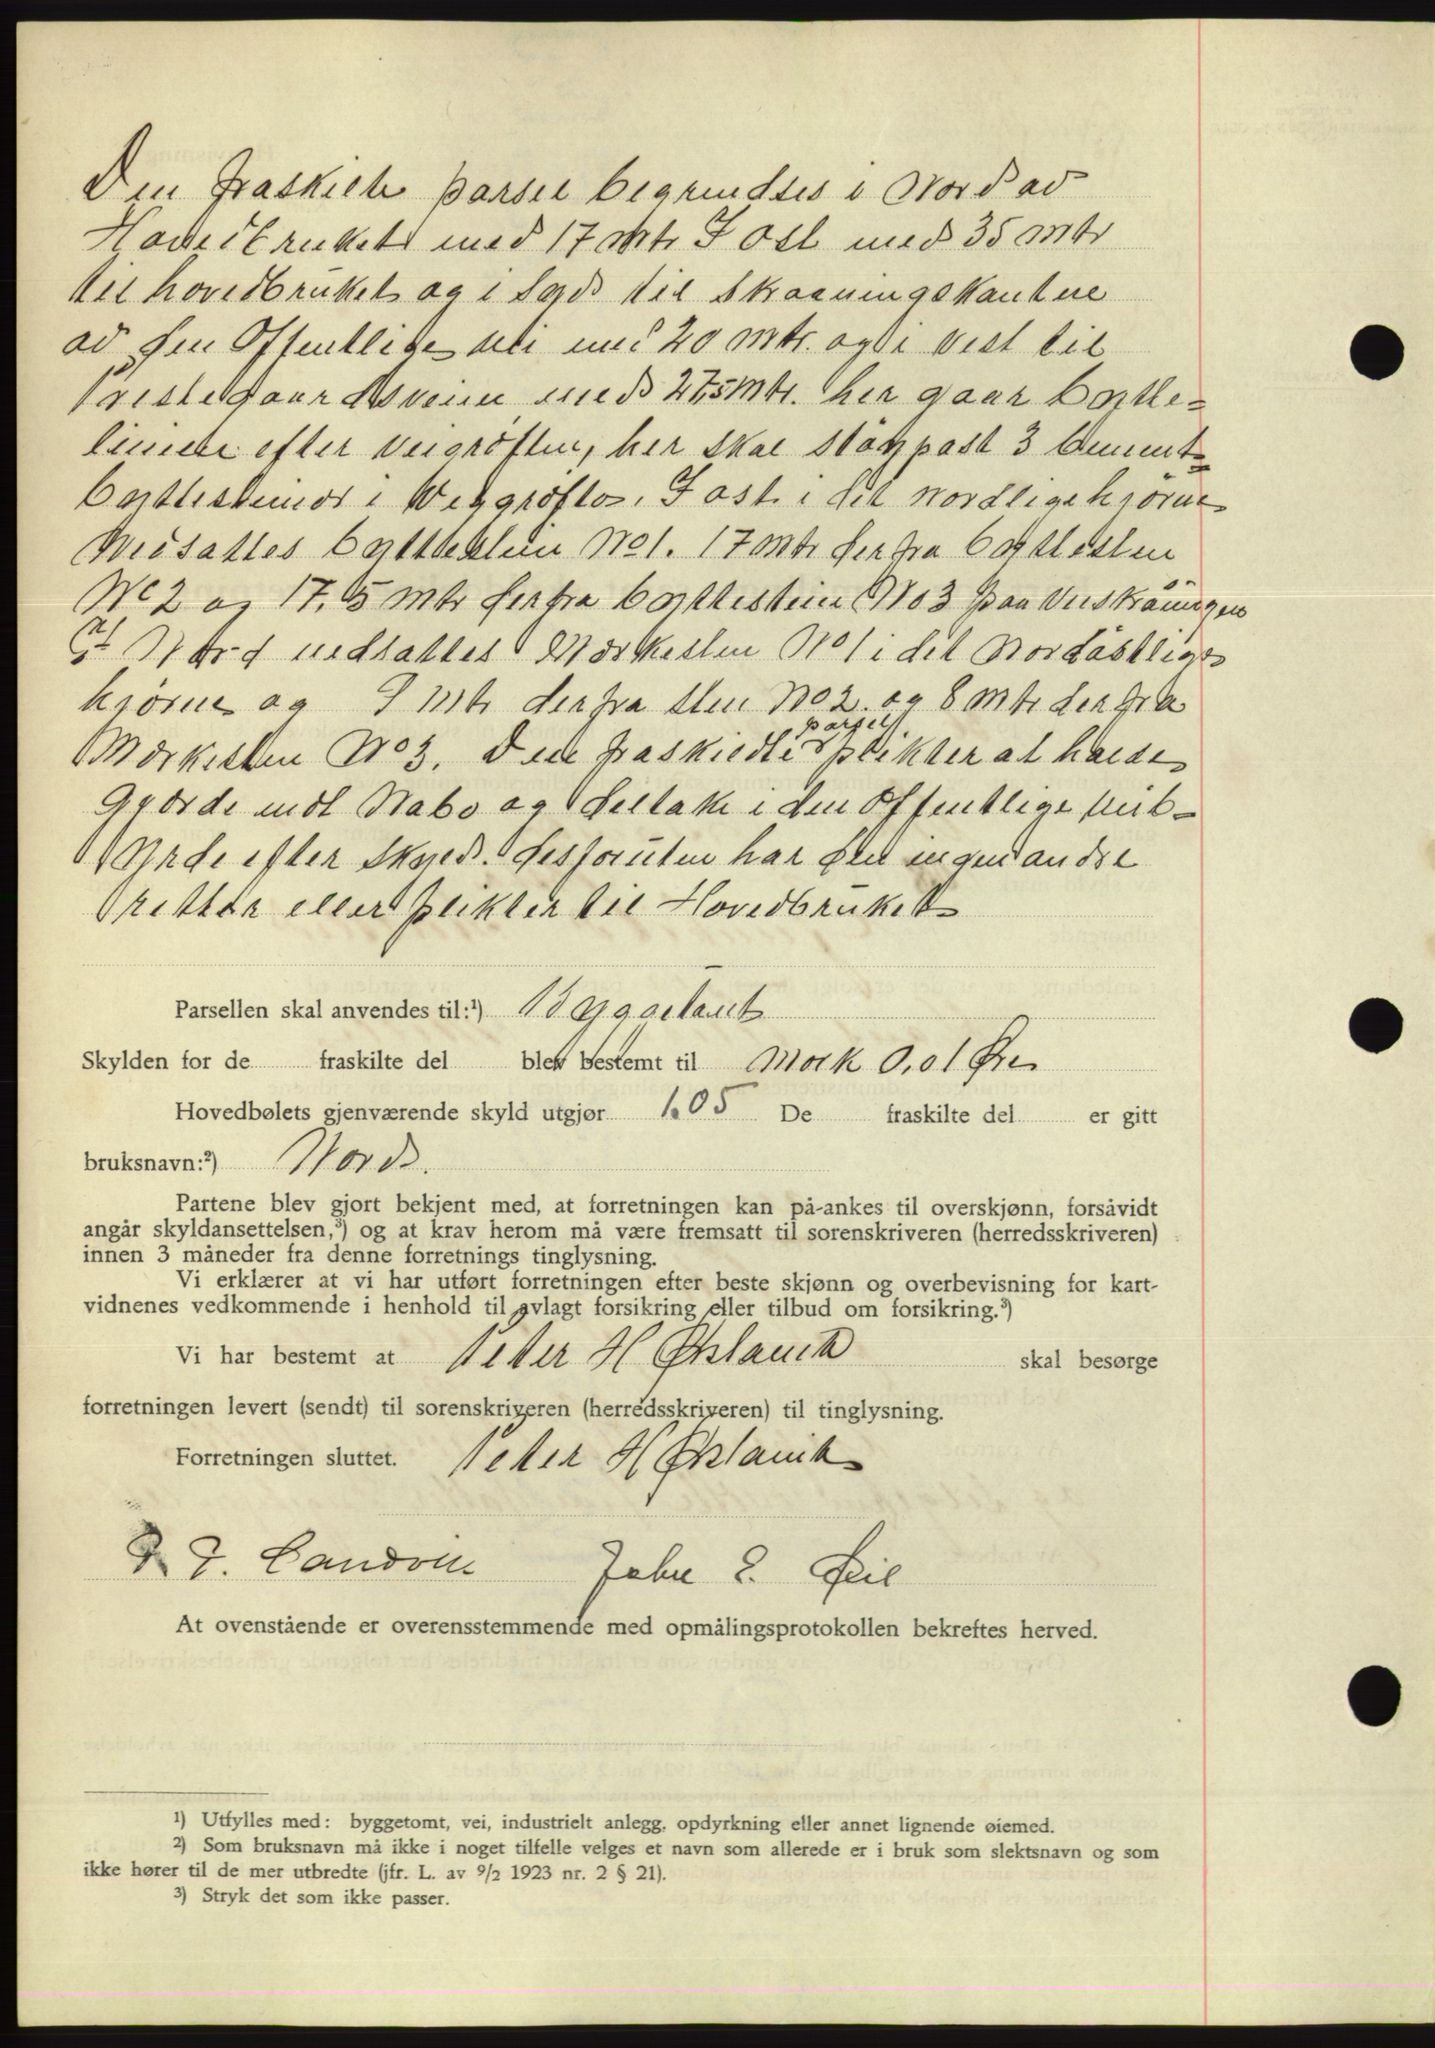 Den fraskilte parsel begrendses i Nord av
Hovedbruket med 17 mtr I ost med 35 mtr
til hovedbruket og i Syd til Skraaningskantene
av den Offentlige vei med 20 mtr. og i vest til
Prestegaardsveien med 27,5 mtr. her gaar bytte-
linien efter veigrøften, her skal støypast 3 Cement-
byttesteiner i Veggrøften. I ost i det nordlige hjørne
Nedsattes byttestein No 1. 17 mtr derfra byttesten
No 2 og 17,5 mtr derfra byttestein No 3 paa Veiskråningen
I Nord nedsattes Merkesten No 1 i det Nordøstlige
hjørne og 9 mtr derfra sten No 2. og 8 mtr derfra
Merkesten No 3. Den fraskiedte parsel plikter at holde
Gjerde mot Nabo og deltake i den Offentlige veit-
byrde efter Skyld. desforuten har den ingen andre
retter eller plikter til Hovedbruket
Parsellen skal anvendes til:¹) Byggetomt
Skylden for de fraskilte del blev bestemt til Mork 0,01 Øre
Hovedbølets gjenværende skyld utgjør 1.05 De fraskilte del er gitt
bruksnavn:²) Nord.
Partene blev gjort bekjent med, at forretningen kan på-ankes til overskjønn, forsåvidt
angår skyldansettelsen,³) og at krav herom må være fremsatt til sorenskriveren (herredsskriveren)
innen 3 måneder fra denne forretnings tinglysning.
Vi erklærer at vi har utført forretningen efter beste skjønn og overbevisning for kart-
vidnenes vedkommende i henhold til avlagt forsikring eller tilbud om forsikring.³)
Vi har bestemt at Peter H Ørslavik skal besørge
forretningen levert (sendt) til sorenskriveren (herredsskriveren) til tinglysning.
Forretningen sluttet. Peter H Ørslavik
J. Landvik John E. Øeil
At ovenstående er overensstemmende med opmålingsprotokollen bekreftes herved.
¹) Utfylles med: byggetomt, vei, industrielt anlegg, opdyrkning eller annet lignende øiemed.
²) Som bruksnavn må ikke i noget tilfelle velges et navn som allerede er i bruk som slektsnavn og som
ikke hører til de mer utbredte (jfr. L. av 9/2 1923 nr. 2 § 21).
³) Stryk det som ikke passer.